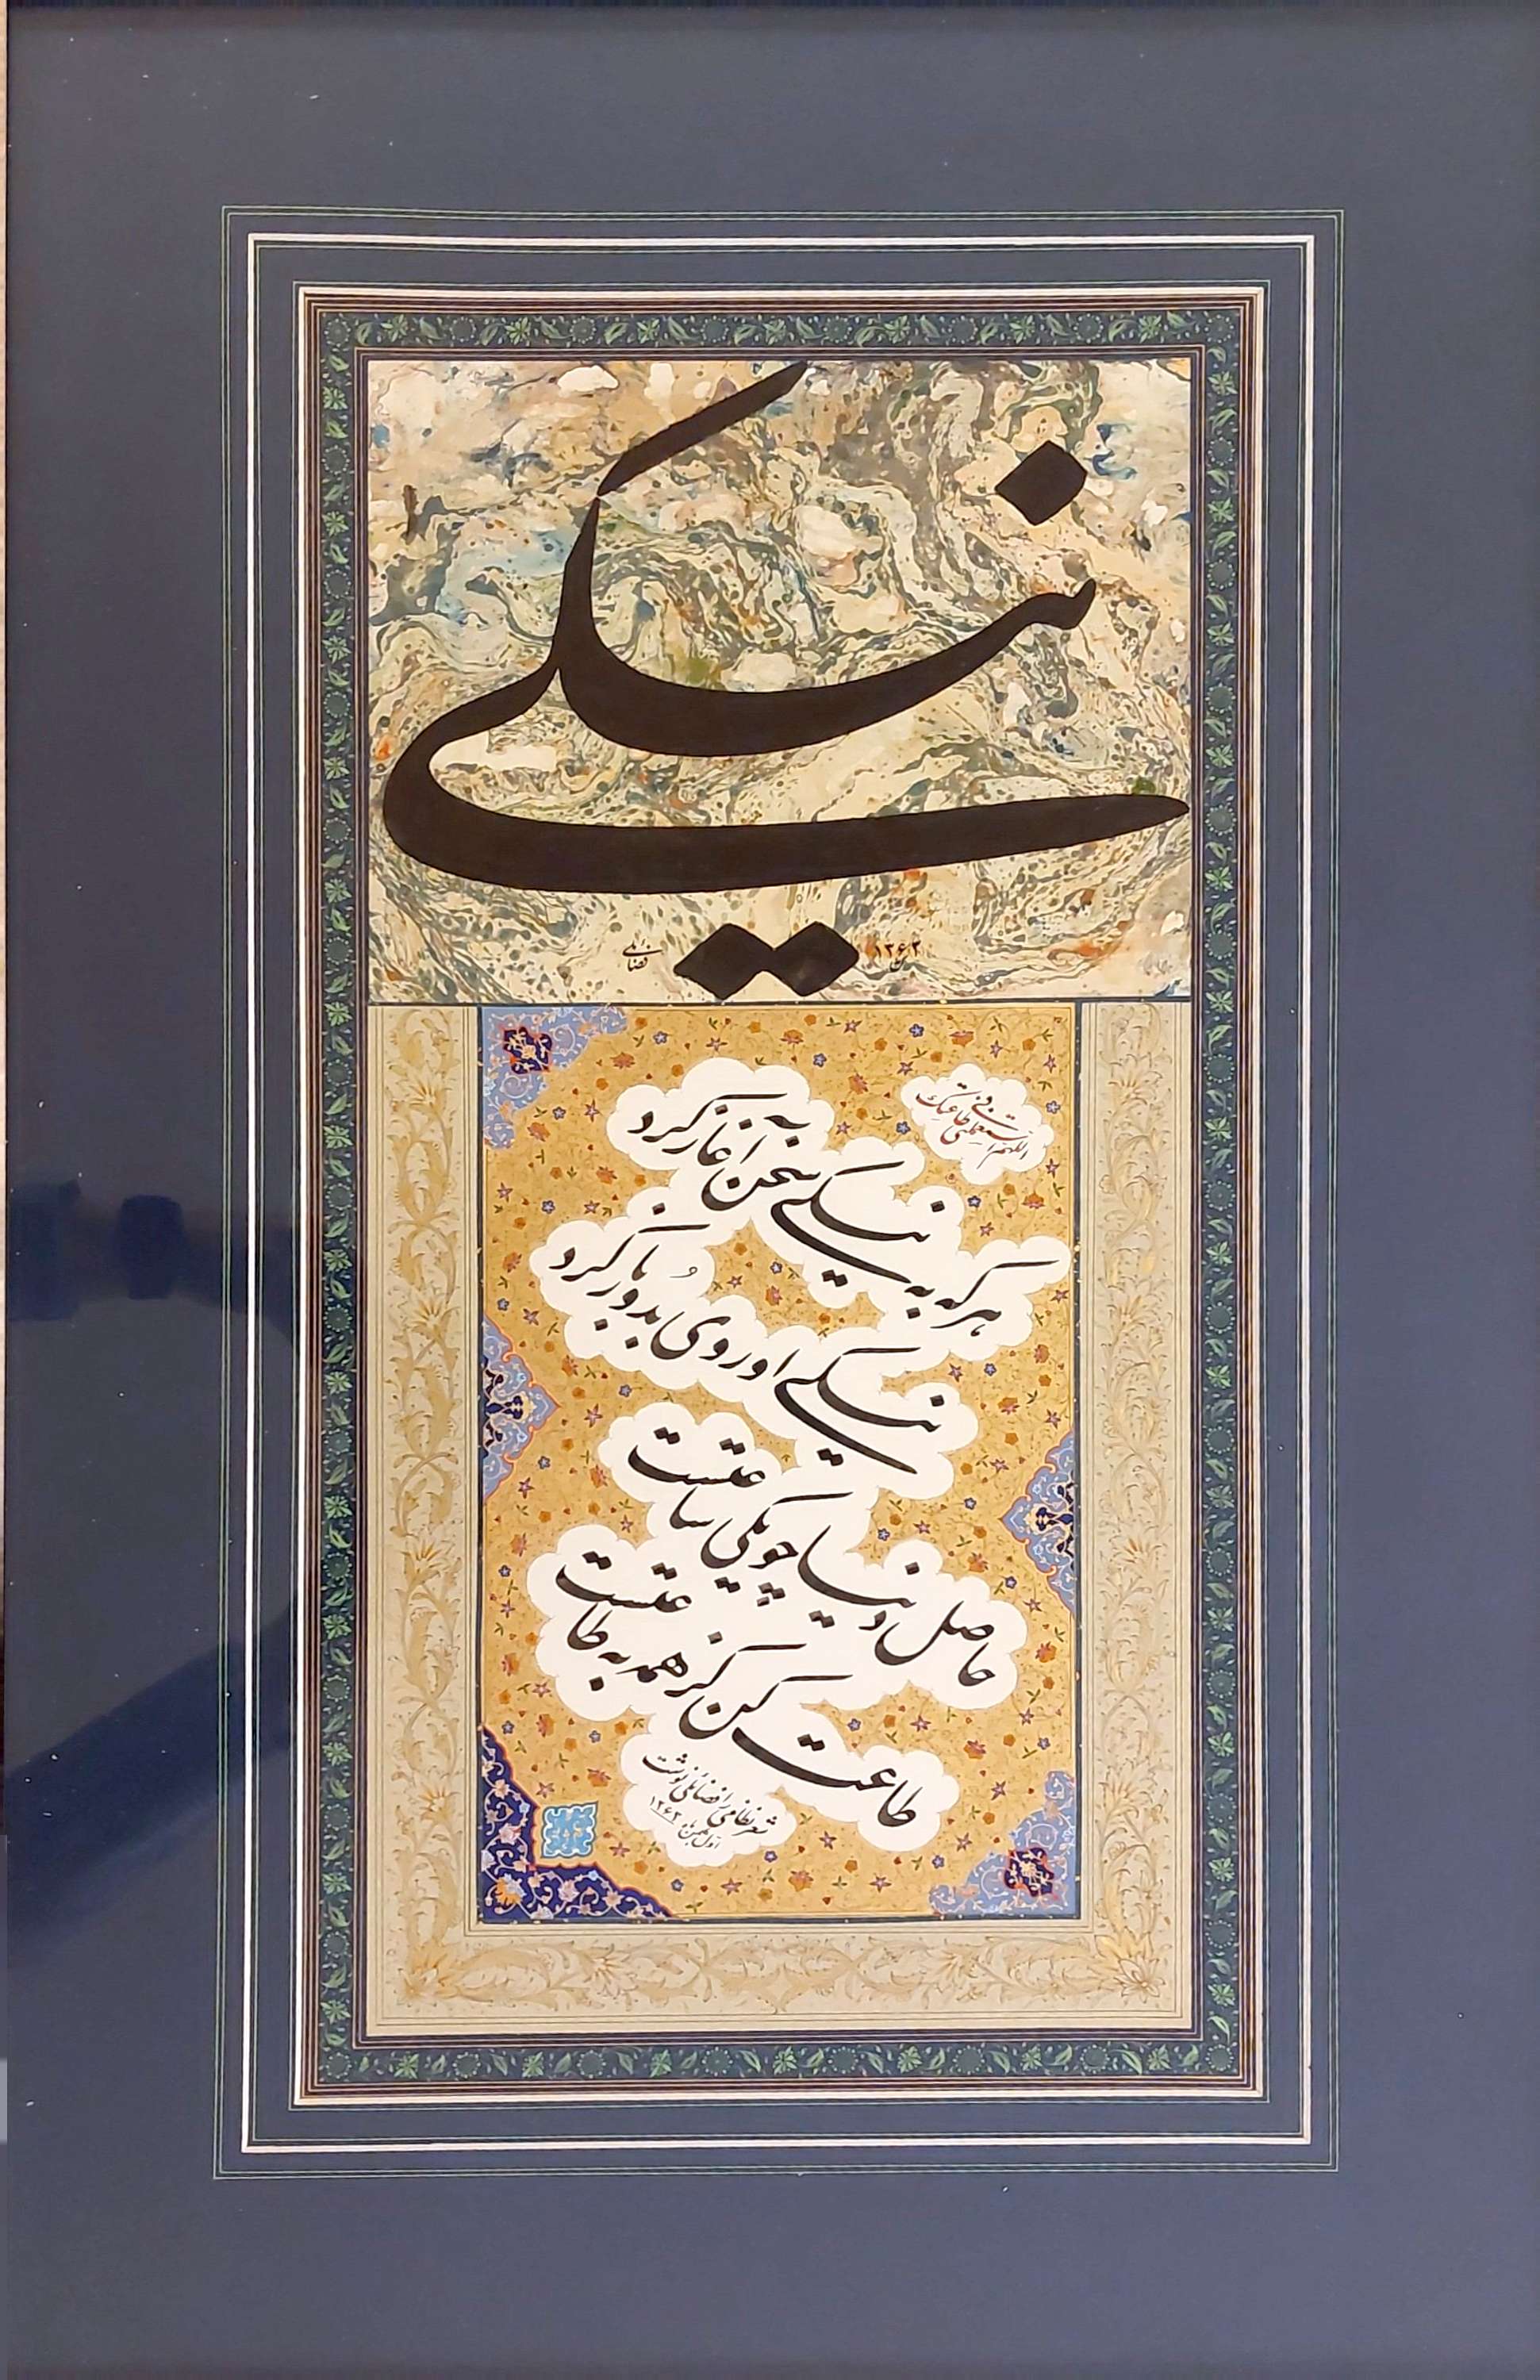 نیکی
۱۳۶۲
فضائلی
اللهم استعملنی فی طاعتک
هر که به نیکی سخن آغاز کرد
نیکی او روی بدو باز کرد
حاصل دنیا چو یکی ساعتست
طاعت کن کز همه به طاعتست
شعر نظامی را فضائلی نوشت
اول بهمن ماه ۱۳۶۲